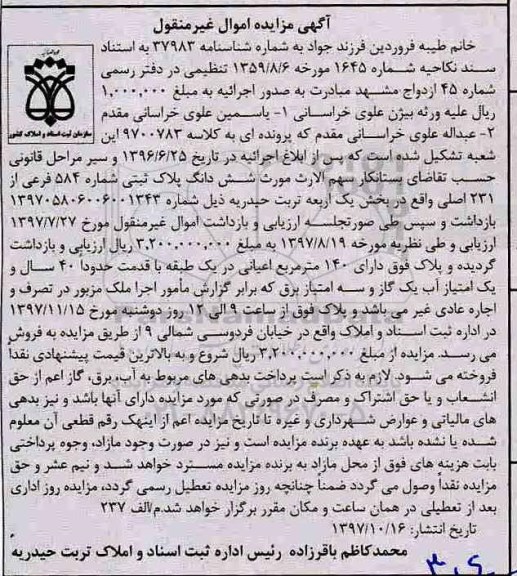 آگهی مزایده اموال غیرمنقول
خانم طیبه فروردین فرزند جواد به شماره شناسنامه ۳۷۹۸۳ به استناد
سند نکاحیه شماره ۱۶۴۵ مورخه ۱۳۵۹/۸/۶ تنظیمی در دفتر رسمی
شماره ۴۵ ازدواج مشهد مبادرت به صدور اجرائیه به مبلغ ۱,۰۰۰,۰۰۰
ریال علیه ورثه بیژن علوی خراسانی ۱- یاسمین علوی خراسانی مقدم
۲- عبداله علوی خراسانی مقدم که پرونده ای به کلاسه ۹۷۰۰۷۸۳ این
شعبه تشکیل شده است که پس از ابلاغ اجرائیه در تاریخ ۱۳۹۶/۶/۲۵ و سیر مراحل قانونی
حسب تقاضای بستانکار سهم الارث مورث شش دانگ پلاک ثبتی شماره ۵۸۴ فرعی از
۲۳۱ اصلی واقع در بخش یک اربعه تربت حیدریه ذیل شماره ۱۳۹۷۰۵۸۰۶۰۰۶۰۰۱۳۴۳
بازداشت و سپس طی صورتجلسه ارزیابی و بازداشت اموال غیرمنقول مورخ ۱۳۹۷/۷/۲۷
ارزیابی و طی نظریه مورخه ۱۳۹۷/۸/۱۹ به مبلغ ۳,۲۰۰,۰۰۰,۰۰۰ ریال ارزیابی و بازداشت
گردیده و پلاک فوق دارای ۱۴۰ مترمربع اعیانی در یک طبقه با قدمت حدودا ۴۰ سال و
یک امتیاز آب یک گاز و سه امتیاز برق که برابر گزارش مأمور اجرا ملک مزبور در تصرف و
اجاره عادی غیر می باشد و پلاک فوق از ساعت ۹ الی ۱۲ روز دوشنبه مورخ ۱۳۹۷/۱۱/۱۵
در اداره ثبت اسناد و املاک واقع در خیابان فردوسی شمالی ۹ از طریق مزایده به فروش
می رسد. مزایده از مبلغ ۳,۲۰۰,۰۰۰,۰۰۰ ریال شروع و به بالاترین قیمت پیشنهادی نقداً
فروخته می شود. لازم به ذکر است پرداخت بدهی های مربوط به آب، برق، گاز اعم از حق
انشعاب و یا حق اشتراک و مصرف در صورتی که مورد مزایده دارای آنها باشد و نیز بدهی
های مالیاتی و عوارض شهرداری و غیره تا تاریخ مزایده اعم از اینهک رقم قطعی آن معلوم
شده یا نشده باشد به عهده برنده مزایده است و نیز در صورت وجود مازاد، وجوه پرداختی
بابت هزینه های فوق از محل مازاد به برنده مزایده مسترد خواهد شد و نیم عشر و حق
مزایده نقداً وصول می گردد ضمناً چنانچه روز مزایده تعطیل رسمی گردد، مزایده روز اداری
بعد از تعطیلی در همان ساعت و مکان مقرر برگزار خواهد شد.م/الف ۲۳۷
تاریخ انتشار: ۱۳۹۷/۱۰/۱۶
محمدکاظم باقرزاده رئیس اداره ثبت اسناد و املاک تربت حیدریه
سازمان ثبت اسناد و املاک کشور